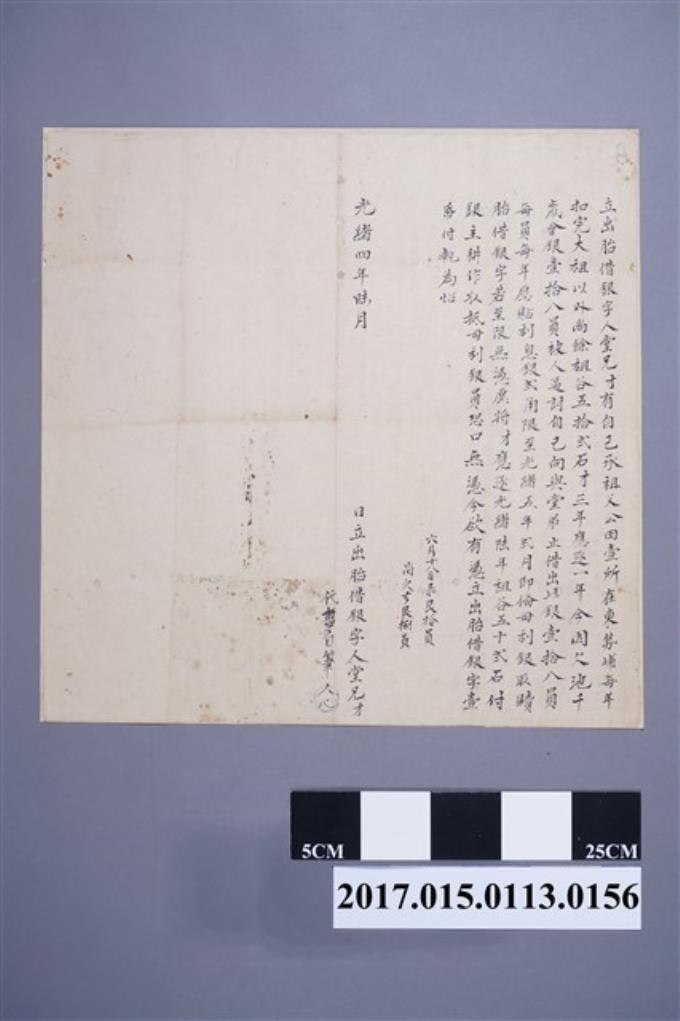 立出胎借銀字人堂兄才有自己承祖父公田壹所在東勢埔每年
扣完大祖以外尚餘祖谷五拾弍石才三年應逐一年今因欠池千
歲會銀壹拾八員被人追討自己向與堂弟 借出 銀壹拾八員
每員每年應貼利息銀弍角限至光緒五年弍月即偹母利銀取贖
胎借銀字若至限無慿愿將才應逐光緒陸年祖谷五十弍石付
銀主耕作收抵母利銀員恐口無慿今欲有慿立出胎借銀字壹
帋付執為炤
六月十八日 艮拾員
尚欠 艮捌員
光緒四年陸月
日立出胎借銀字人堂兄才
代 筆人
5CM 25CM
2017.015.0113.0156